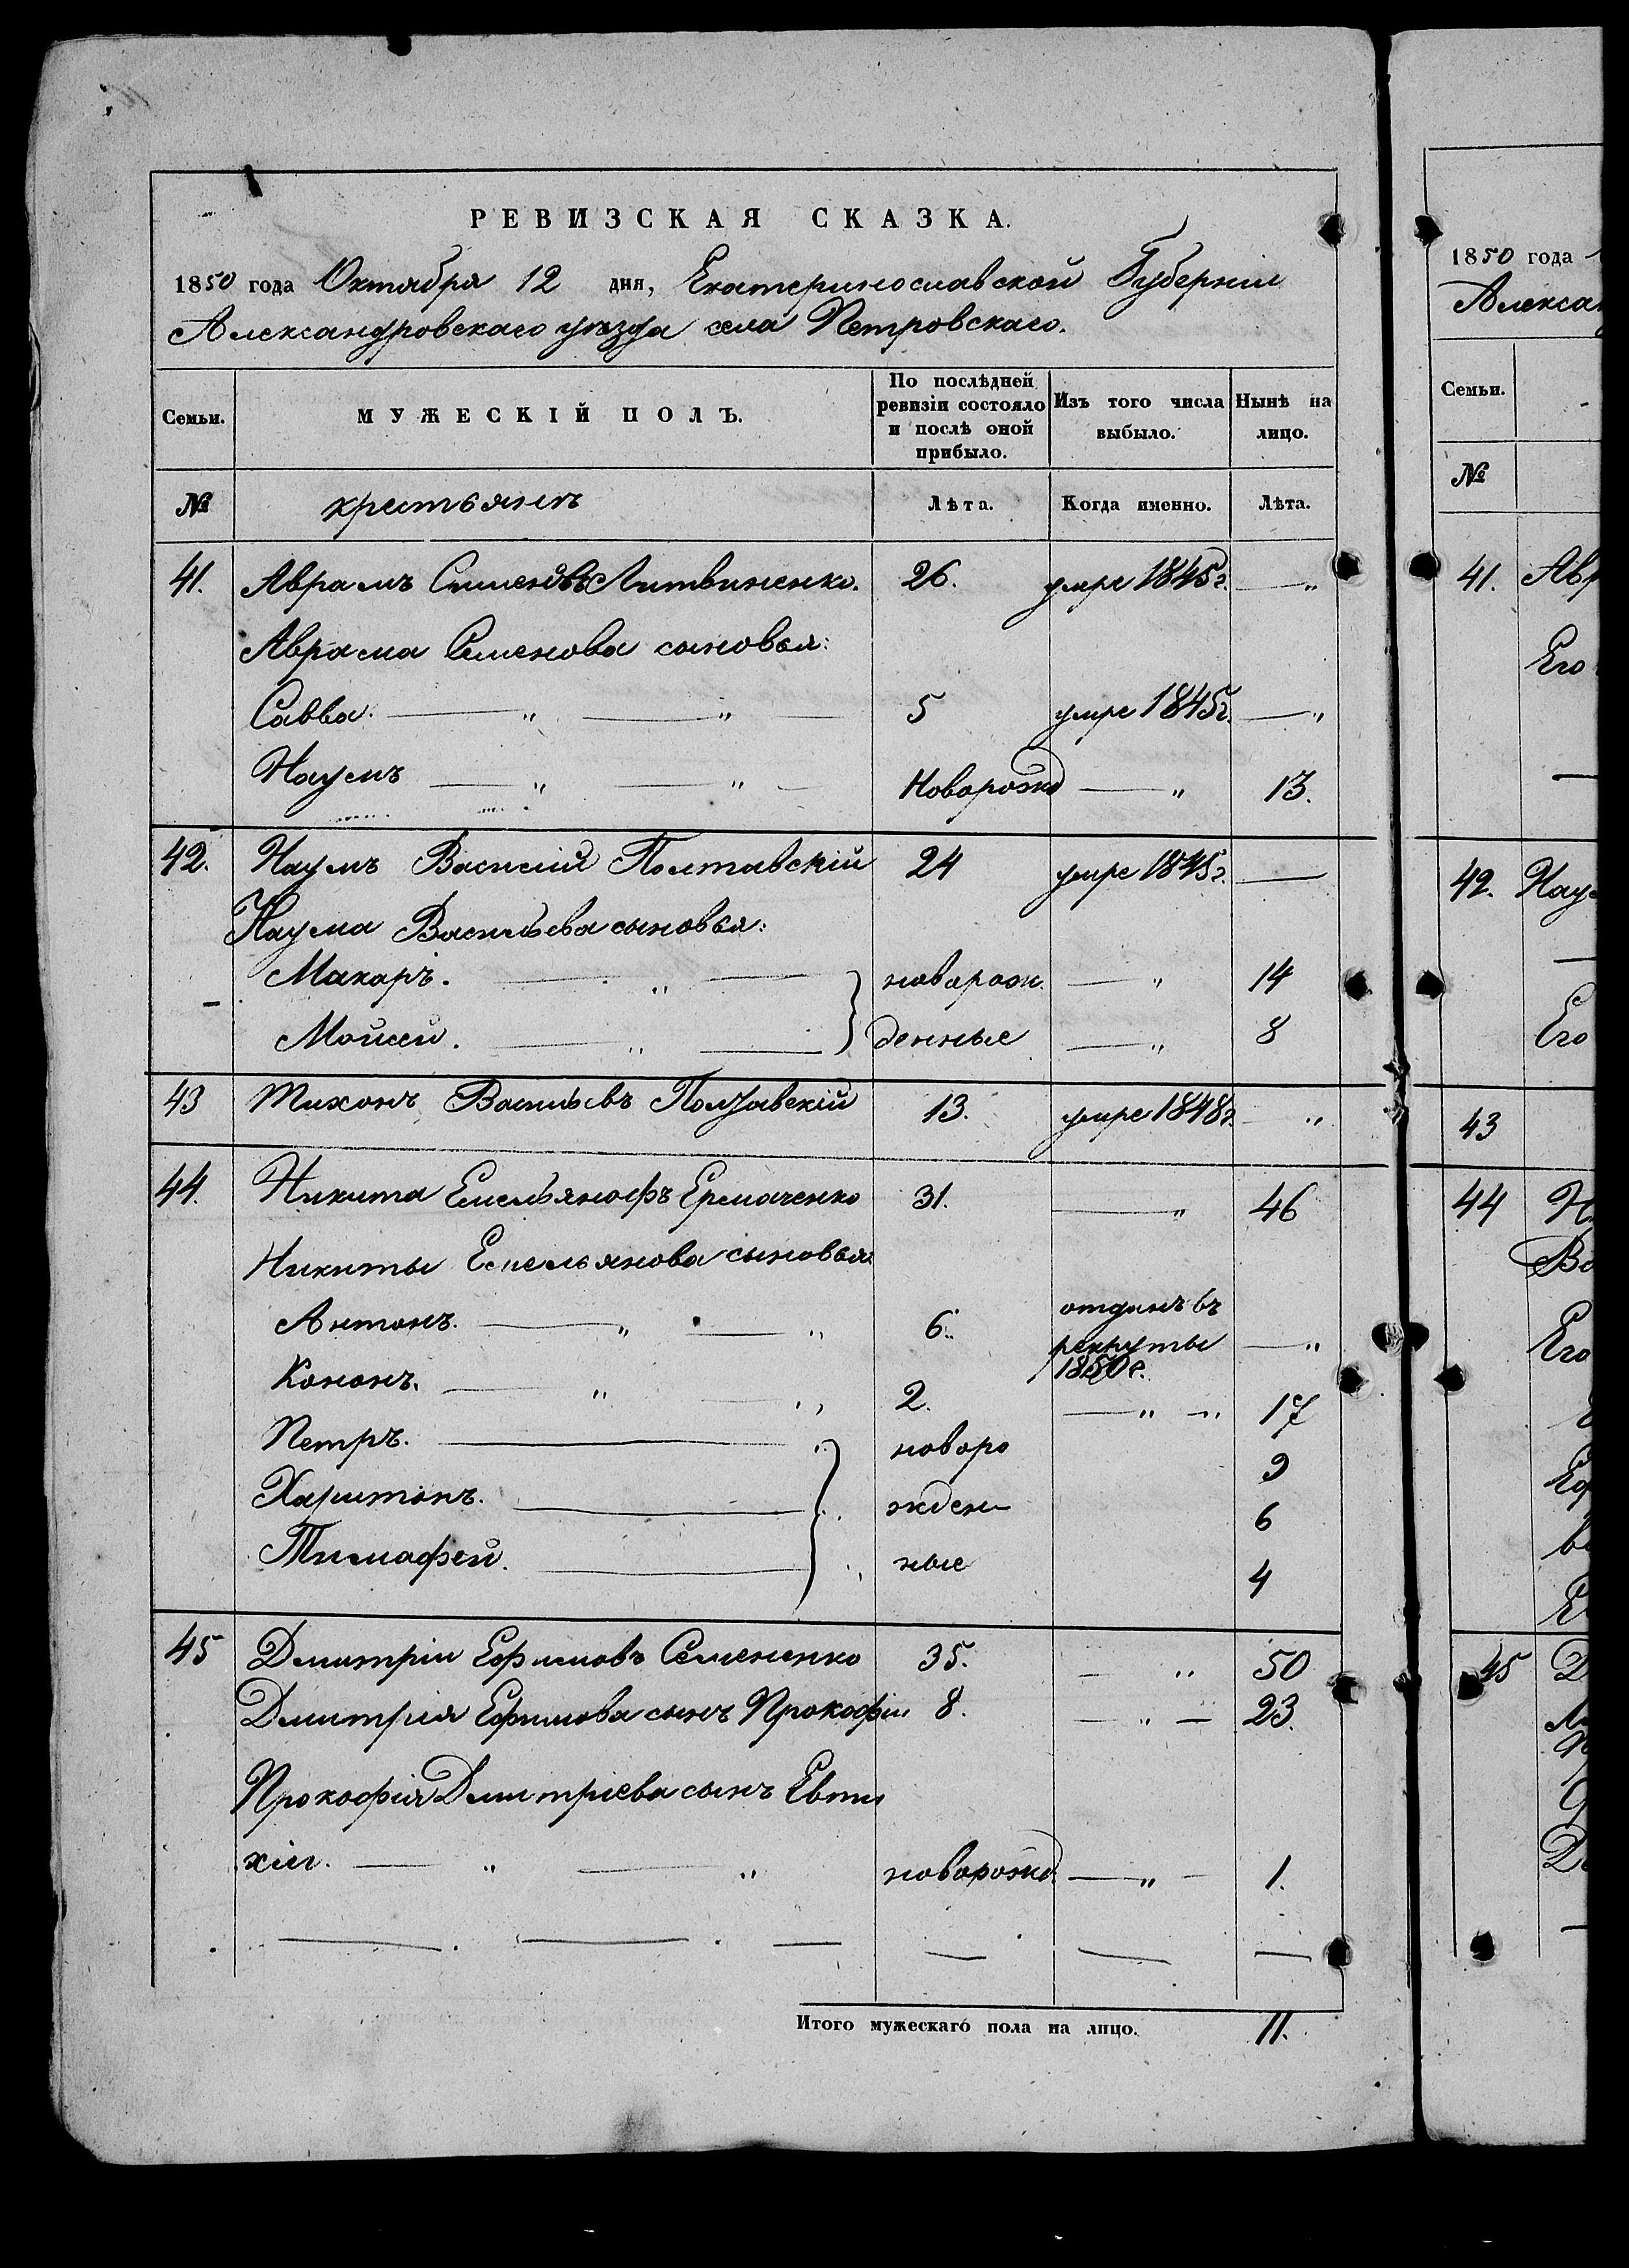 РЕВИЗСКАЯ СКАЗКА.
1850 года Октября 12 дня, Екатеринославской Губерніи
Александровскаго уѣзда села Петровскаго.
Семьи. МУЖЕСКІЙ ПОЛЪ. По послѣдней ревизіи состояло и послѣ оной прибыло. Изъ того числа выбыло. Нынѣ на лицо.
№ крестьянъ Лѣта. Когда именно. Лѣта.
41. Аврамъ Семеновъ Литвиненко. 26. умре 1845г. — „
Аврама Семенова сыновья:
Савва. — „ — „ — 5 умре 1845г. — „
Наумъ — „ — „ — Новорожд — „ 13.
42. Наумъ Василій Полтавскій 24 умре 1845г. —
Наума Васильева сыновья:
Макарѣ. — „ — новорож. — „ 14
Мойсей. — „ — денные — „ 8
43 Тихонъ Васильевъ Полтавскій 13. умре 1848г. „
44. Никита Емельянофъ Ермаченко 31. — „ 46
Никиты Емельянова сыновья
Антонъ. — „ — „ 6. отданъ въ рекруты 1850г. — „
Кононъ. — „ — „ 2. — „ — „ 17
Петръ. — „ новоро 9
Харитонъ. — жден— 6
Тимафей. — „ ные 4
45 Дмитріи Ефимовъ Семененко 35. — „ 50
Дмитрия Ефимова сынъ Прокофіи 8. — „ — 23.
Прокофія Дмитріева сынъ Евти
хіи. — „ — „ новорожд. — „ — 1.
— . — . — — — —
Итого мужескаго пола на лицо. 11.
1850 года
Алексан
Семьи.
№
41. Авр
Его
—
42. Нау
—
Его
43
44 Н
Во
Его
45 Д